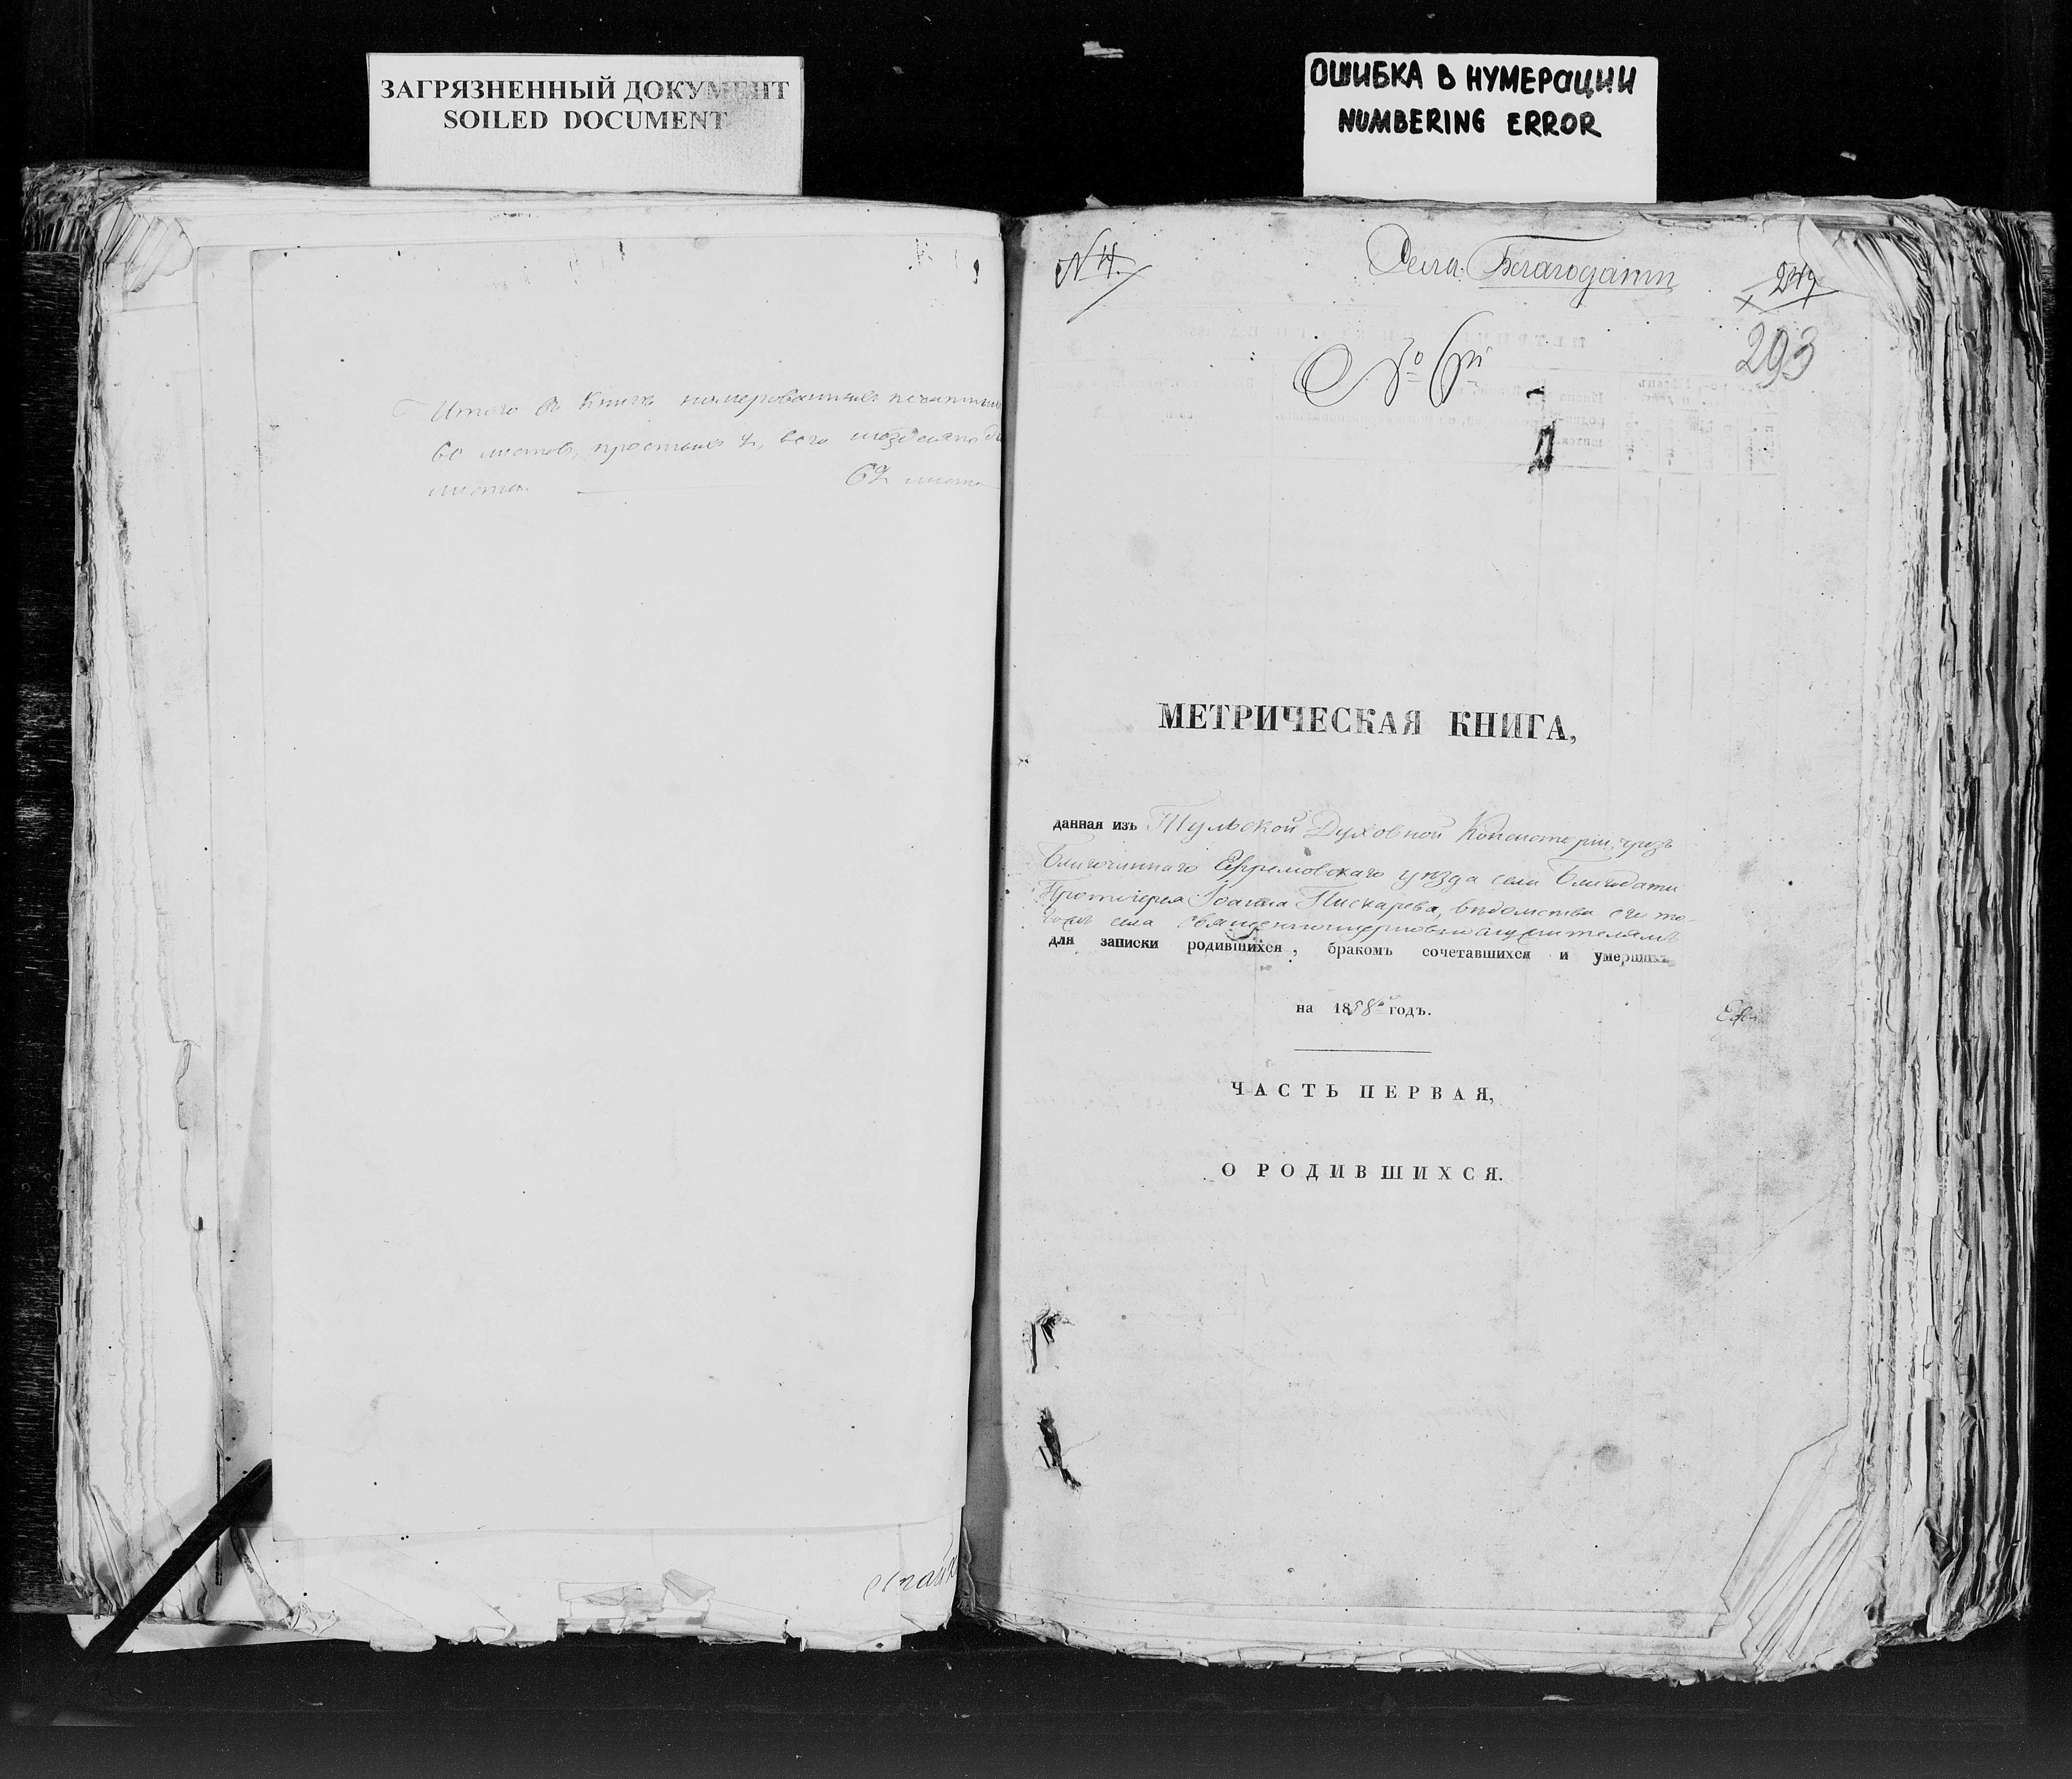 ЗАГРЯЗНЕННЫЙ ДОКУМЕНТ
SOILED DOCUMENT
ОШИБКА В НУМЕРАЦИИ
NUMBERING ERROR
Итого въ книгѣ нумерованныхъ печатныхъ
60 листовъ, простыхъ 2, всего шездесятъ
листа. 62 листа
N 4.
Села Благодати
293
№ 6й
МЕТРИЧЕСКАЯ КНИГА,
данная изъ Тульской Духовной Консисторіи, чрезъ
Благочиннаго Ефремовскаго уѣзда села Благодати
Протоіерея Іоанна Пискарева, вѣдомства его то-
гожъ села священноцерковнослужителямъ
для записки родившихся, бракомъ сочетавшихся и умершихъ
на 1858й годъ.
ЧАСТЬ ПЕРВАЯ,
О РОДИВШИХСЯ.